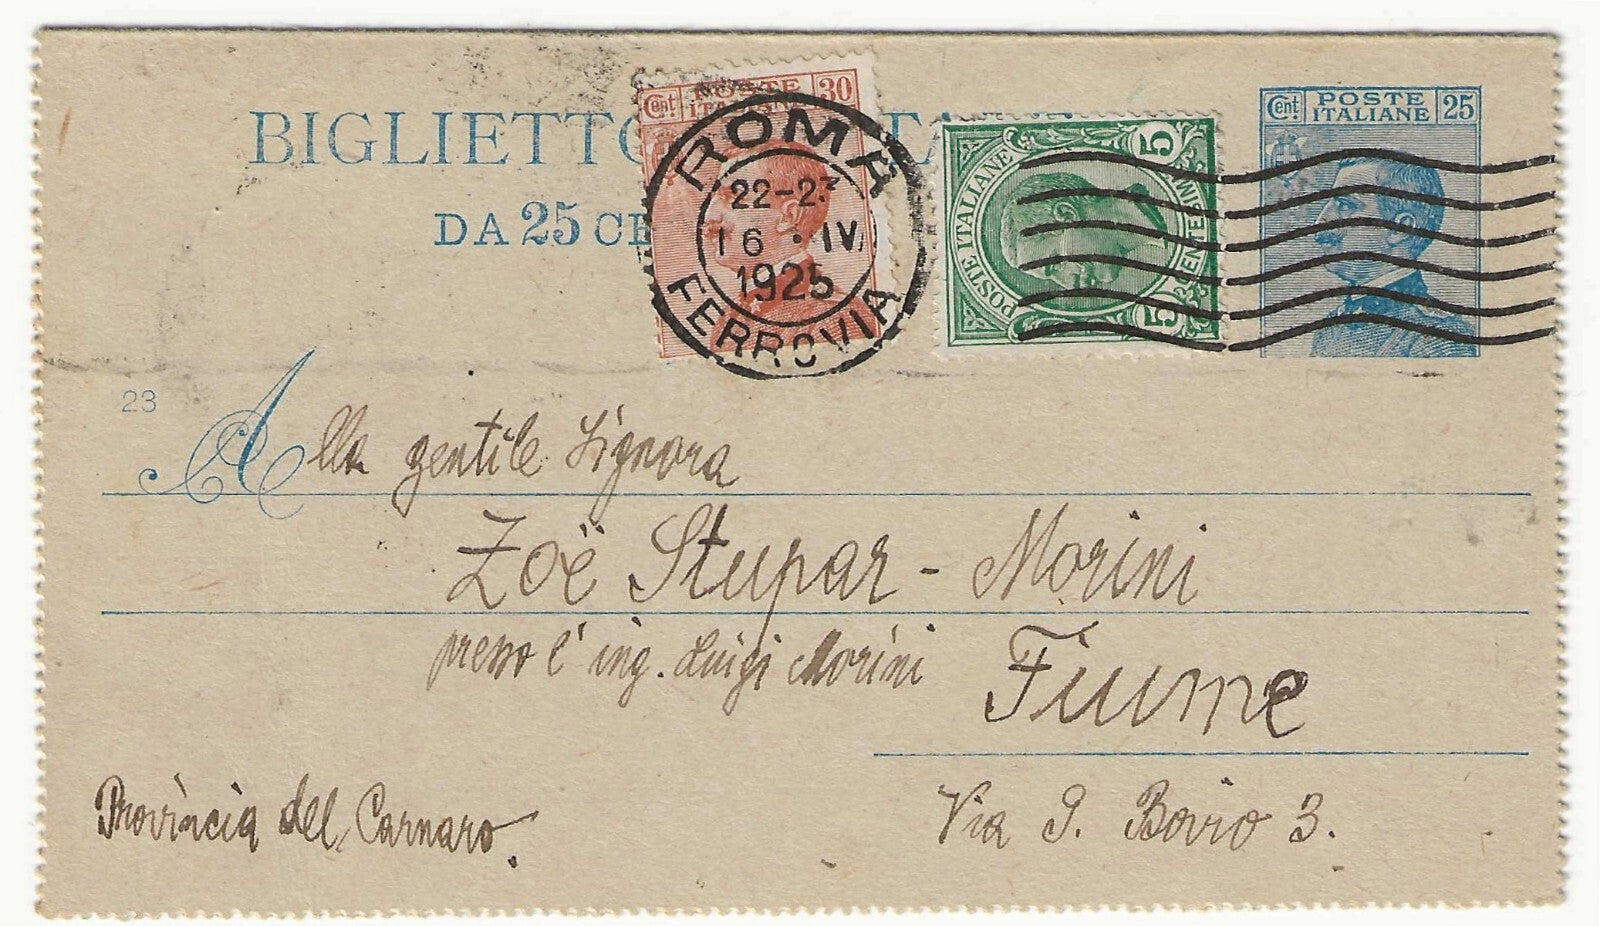 BIGLIETTO
DA 25 CE
Cent. POSTE ITALIANE 30
ROMA
22-23
16 · IV
1925
FERROVIA
POSTE ITALIANE
5
5
Cent. POSTE ITALIANE 25
23
Alla gentile Signora
Zoë Stupar - Morini
presso l' ing. Luigi Morini
Fiume
Provincia del Carnaro.
Via G. Bovio 3.